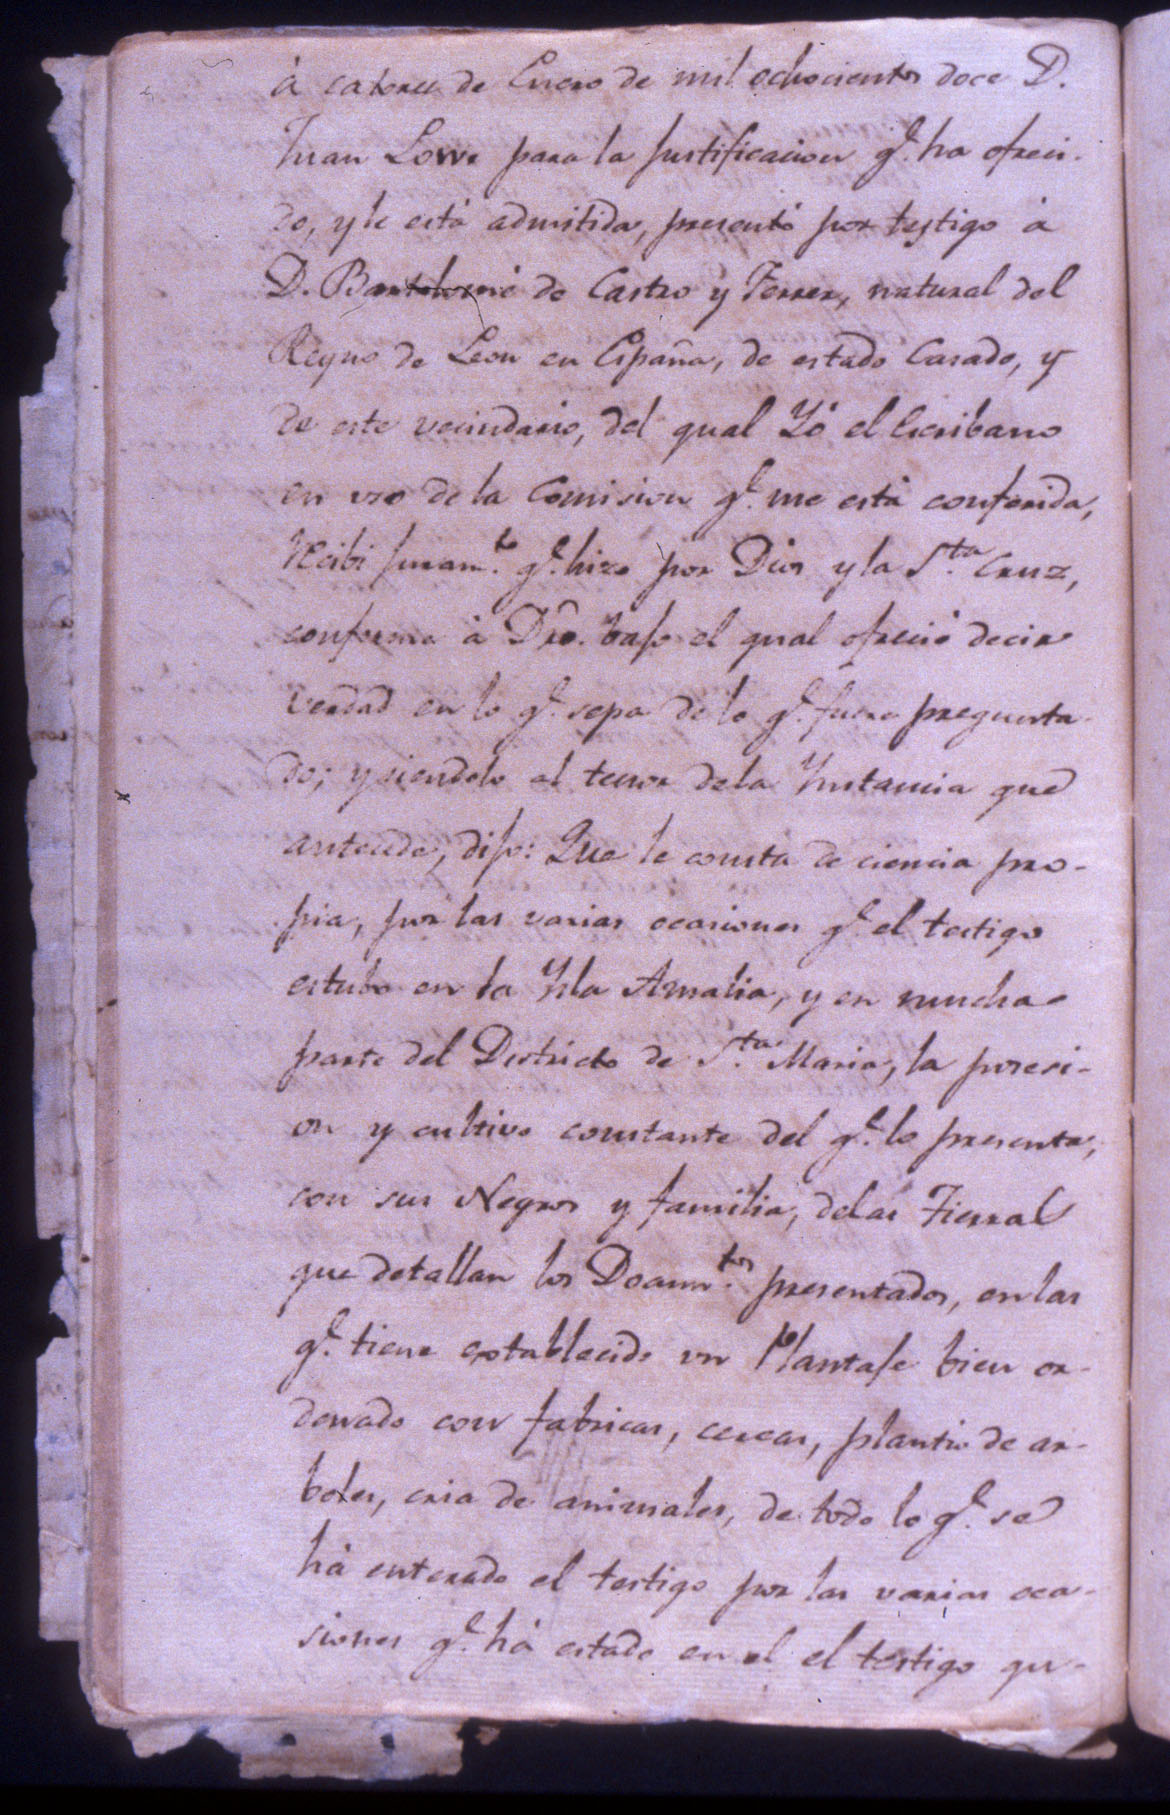 à catorce de Enero de mil ochocientos doce D.
Juan Lowe para la justificacion q.e ha ofreci-
do, y le está admitida, presentó por testigo á
D. Bartolomé de Castro y Ferrer, natural del
Reyno de Leon en España, de estado Casado, y
de este vecindario, del qual Yó el Escribano
en uso de la Comision q.e me está conferida,
recibi juram.to q.e hizo por Dios y la S.ta Cruz,
conforme à Dro. bajo el qual ofreció decir
verdad en lo q.e sepa de lo q.e fuere pregunta-
do; y siendolo al tenor de la Ynstancia que
antecede, dijo: Que le consta de ciencia pro-
pia, por las varias ocasiones q.e el testigo
estubo en la Ysla Amalia, y en mucha
parte del Districto de S.ta Maria, la posesi-
on y cultivo constante del q.e lo presenta,
con sus Negros y familia, de las Tierras
que detallan los Docum.tos presentados, en las
q.e tiene establecido un Plantaje bien or-
denado con fabricas, cercas, plantio de ar-
boles, cria de animales, de todo lo q.e se
há enterado el testigo por las varias oca-
siones q.e há estado en el el testigo qu-